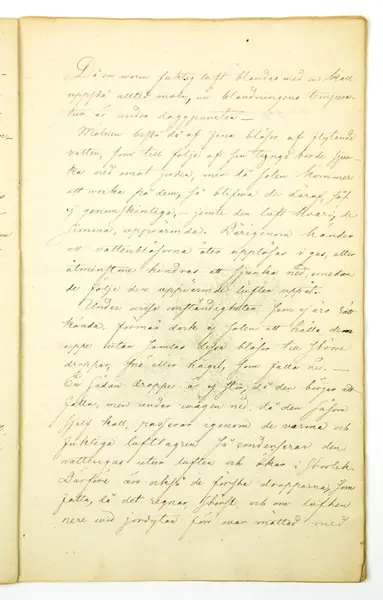 Då en varm fuktig luft blandas med en kall
uppstå alltid moln, om blandningens tempera-
tur är under daggpunkten —
Molnen bestå då af fina blåsor af flytande
vatten, som till följe af sin tyngd borde sjun-
ka ned emot jorden, men då solen kommer
att werka på dem, så blifwa de deraf, så
ej genomskinliga, — jemte den luft
uppvärmda. Därigenom händer
att vattenblåsorna åter upplösas i gas, eller
åtminstone hindras att sjunka ned, emedan
de följa den uppvärmda luften uppåt.
Under wissa omständigheter, som ej äro rätt
kända, förmår dock ej solen att hålla dem
uppe utan samlas dessa blåsor till större
droppar, snö eller hagel, som falla ned. —
En sådan droppe är ej stor, då den börjar att
falla, men under wägen ned, då den såsom
sjelf kall, passerar igenom de varma och
fuktiga luftlagren så condenserar den
vattengas utur luften och ökas i storlek.
Därföre äro också de första dropparna, som
falla, då det regnar, störst, och om luften
nere wid jordytan förr war mättad med